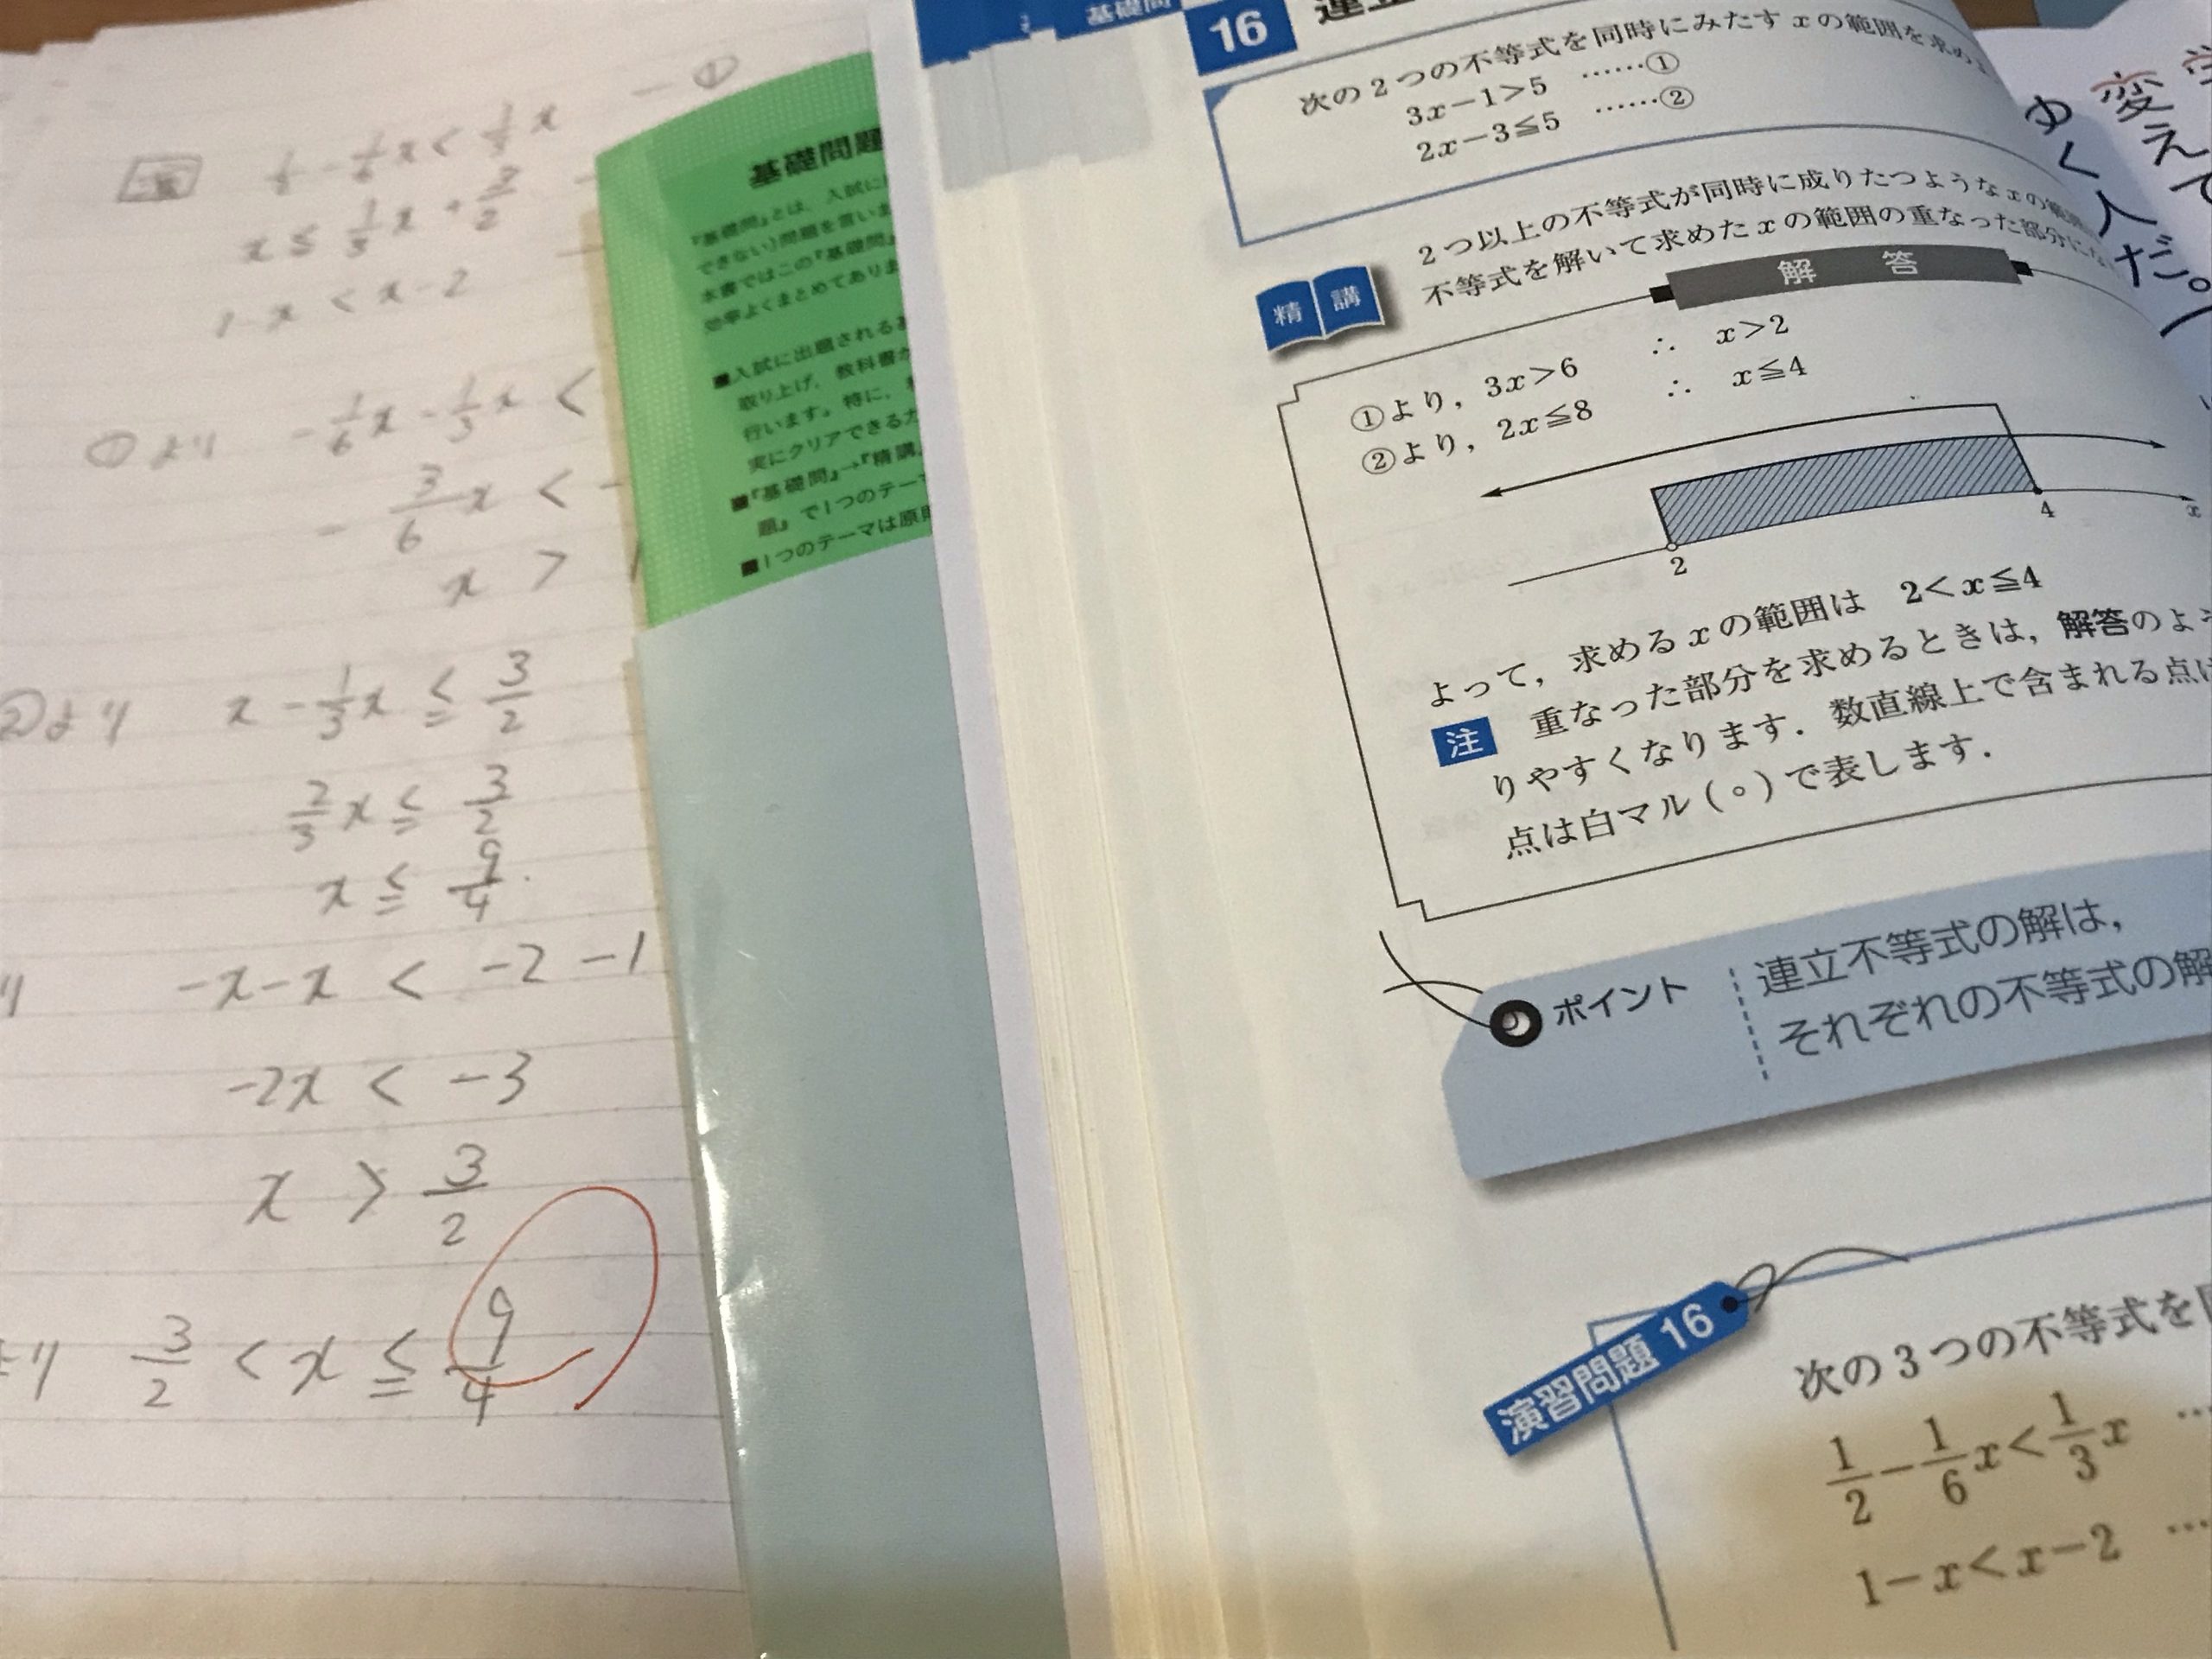 1/6 - 1/6x < 1/3x - ①
x ≦ 1/3x + 3/2
1-x < x-2
①より -1/6x - 1/3x <
- 3/6x < -
x > 1
②より x - 1/3x ≦ 3/2
2/3x ≦ 3/2
x ≦ 9/4
り -x-x < -2 -1
-2x < -3
x > 3/2
より 3/2 < x ≦ 9/4
基礎問題
『基礎問』とは,入試に
できない)問題を言いま
本書ではこの『基礎問』
効率よくまとめてありま
■入試に出題される基
取り上げ,教科書か
行います。特に,
実にクリアできる力
■『基礎問』→『精講』
題』で1つのテー
■1つのテーマは原則
基礎問
16 連立
次の2つの不等式を同時にみたすxの範囲を求めよ
3x-1>5 ……①
2x-3≦5 ……②
精講
2つ以上の不等式が同時に成りたつようなxの範囲
不等式を解いて求めたxの範囲の重なった部分にな
解答
①より,3x>6 ∴ x>2
②より,2x≦8 ∴ x≦4
2 4 x
よって,求めるxの範囲は 2<x≦4
注 重なった部分を求めるときは,解答のよう
りやすくなります.数直線上で含まれる点は
点は白マル(○)で表します.
ポイント
連立不等式の解は,
それぞれの不等式の解
演習問題 16
次の3つの不等式を同
1/2-1/6x<1/3x …
1-x<x-2 …
変えて
ゆく人
だ。